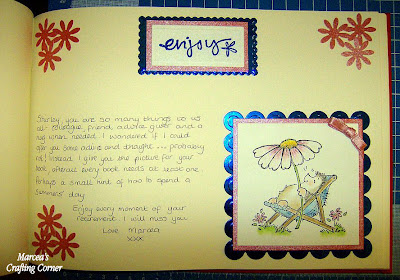 enjoy
Shirley, you are so many things to us
all - colleague, friend, advice giver and a
hug when needed. I wondered if I could
offer you some advice and thought... probably
not! Instead I give you this picture for your
book, afterall every book needs at least one.
Perhaps a small hint of how to spend a
summers' day.
Enjoy every moment of your
retirement. I will miss you
Love Marcea
xxx
Marcea's
Crafting Corner